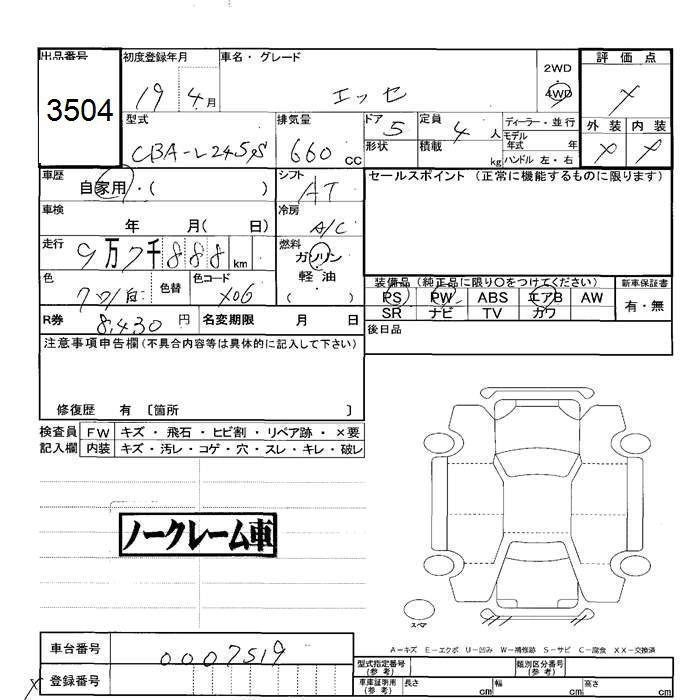 出品番号 初度登録年月 車名・グレード 2WD 評価点
3504 19 4月 エッセ 4WD
型式 排気量 ドア 5 定員 4 人 ディーラー・並行 外装 内装
モデル年式 年
CBA-L245S 660 cc 形状 積載 kg ハンドル 左・右
車歴 自家用・( ) シフト AT セールスポイント (正常に機能するものに限ります)
車検 年 月( 日) 冷房 A/C
走行 9万7千888km 燃料 ガソリン
軽油
( )
色 色替 色コード X06
装備品 (純正品に限り○をつけてください) 新車保証書
PS PW ABS エアB AW 有・無
SR ナビ TV カワ
R券 8,430 円 名変期限 月 日 後日品
注意事項申告欄 (不具合内容等は具体的に記入して下さい)
修復歴 有 〔箇所 〕
検査員 FW キズ・飛石・ヒビ割・リペア跡・×要
記入欄 内装 キズ・汚レ・コゲ・穴・スレ・キレ・破レ
ノークレーム車
スペア
A-キズ E-エクボ U-凹み W-補修跡 S-サビ C-腐食 XX-交換済
車台番号 0007519
登録番号
型式指定番号 (参考) 類別区分番号 (参考)
車庫証明用 (参考) 長さ cm 幅 cm 高さ cm